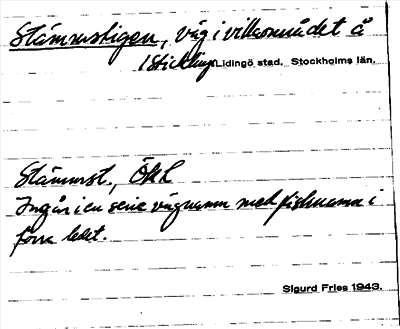 Stämmstigen, väg i villaområdet å
1 Stickling Lidingö stad. Stockholms län.
Stämmst., ÖKL
Ingår i en serie vägnamn med fisknamn i
förra ledet.
Sigurd Fries 1943.